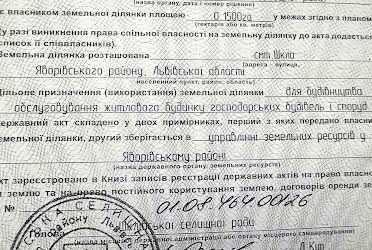 (назва органу, дата і номер рішення)
є власником земельної ділянки площею 0,1500га у межах згідно з планом
(гектарів або кв. метрів)
(У разі виникнення права спільної власності на земельну ділянку до акта додається
список її співвласників).
Земельна ділянка розташована смт.Шкло
(адреса - вулиця,
Яворівського району, Львівської області
населений пункт, район, область)
Цільове призначення (використання) земельної ділянки для будівництва
обслуговування житлового будинку господарських будівель і споруд
Державний акт складено у двох примірниках, перший з яких передано власни
земельної ділянки, другий зберігається в управлінні земельних ресурсів у
Яворівському районі
(назва державного органу земельних ресурсів)
кт зареєстровано в Книзі записів реєстрації державних актів на право власно
на землю та на право постійного користування землею, договорів оренди зе
№ 01:08.464.00026
Шклівської селищної ради
(назва місцевої державної адміністрації або органу місцевого самоврядування)
Голова